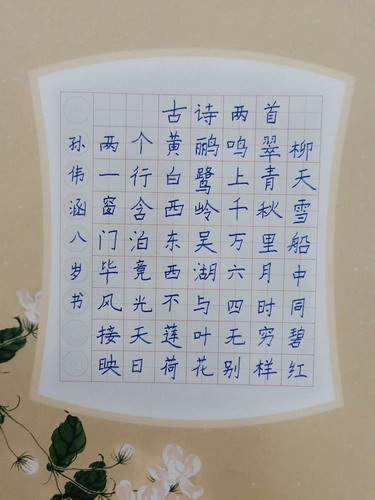 古诗两首
两个黄鹂鸣翠柳
一行白鹭上青天
窗含西岭千秋雪
门泊东吴万里船
毕竟西湖六月中
风光不与四时同
接天莲叶无穷碧
映日荷花别样红
孙伟涵八岁书